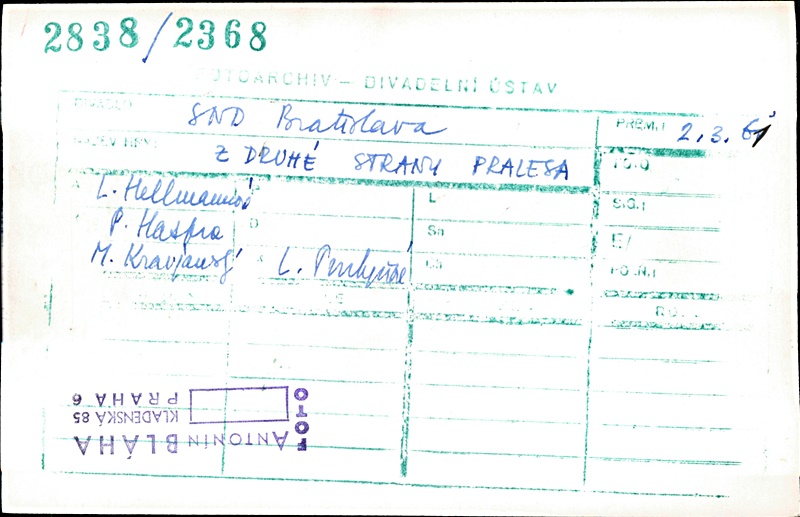 2838/2368
FOTOARCHIV — DIVADELNÍ ÚSTAV
DIVADLO SND Bratislava PREM.: 2. 3. 61
NÁZEV HRY: Z DRUHÉ STRANY PRALESA FOTO
L. Hellmannová L SIG.:
P. Haspra Sn E/
M. Kravjanský L. Purkyňové
FOTO
ANTONÍN BLÁHA
KLADENSKÁ 85
PRAHA 6